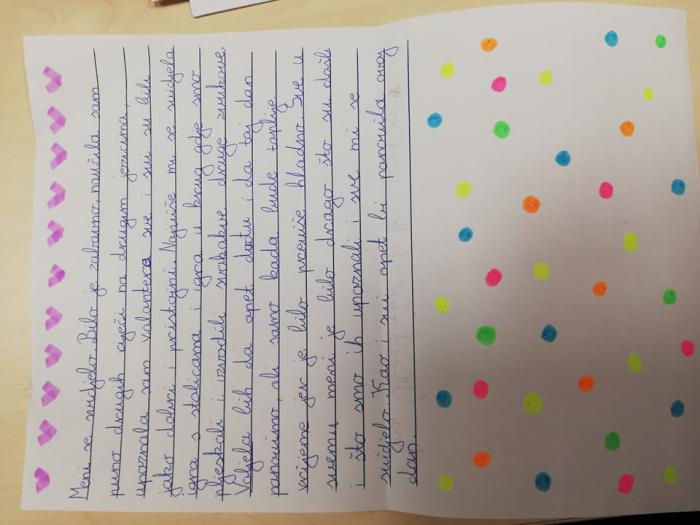 Meni se svidjelo. Bilo je zabavno, naučila sam
puno drugih riječi na drugim jezicima,
upoznala sam volontere sve i svi su bili
jako dobri i pristojni. Najviše mi se svidjela
igra s stolicama i igra u krug gdje smo
pljeskali i izvodili svakakve druge zvukove.
Voljela bih da opet dođu i da taj dan
ponovimo, ali samo kada bude toplije
vrijeme jer je bilo previše hladno. Sve u
svemu meni je bilo drago što su došli
i što smo ih upoznali i sve mi se
svidjelo. Kao i svi opet bi ponovila ovaj
dan.